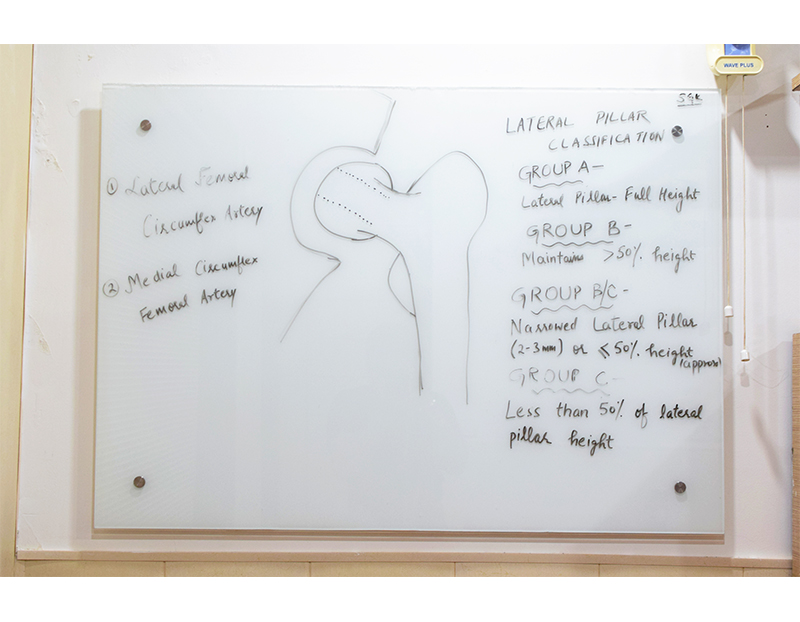 WAVE PLUS
SGK
① Lateral Femoral
Circumflex Artery
② Medial Circumflex
Femoral Artery
LATERAL PILLAR
CLASSIFICATION
GROUP A-
Lateral Pillar- Full Height
GROUP B-
Maintains >50% height
GROUP B/C-
Narrowed Lateral Pillar
(2-3mm) or ≤50% height
(approx)
GROUP C-
Less than 50% of lateral
pillar height